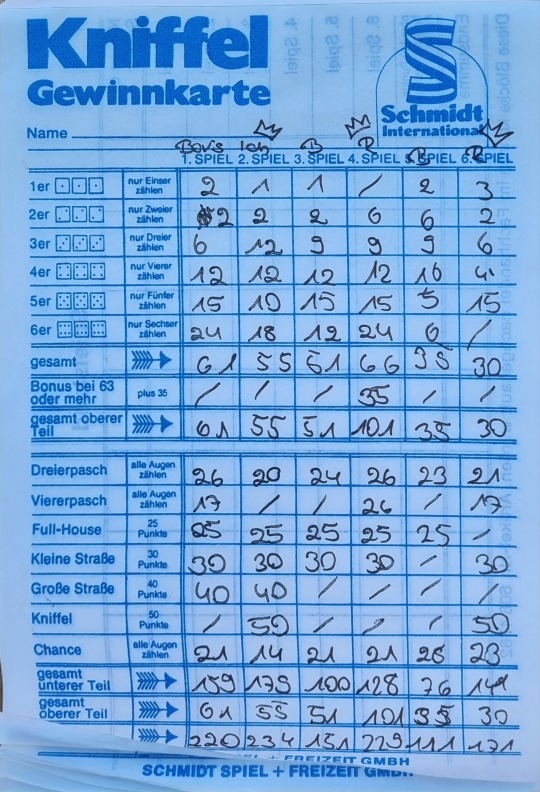 Kniffel
Gewinnkarte
Schmidt
International
Name
Boris Ich B R B R
1. SPIEL 2. SPIEL 3. SPIEL 4. SPIEL 5. SPIEL 6. SPIEL
1er nur Einser zählen 2 1 1 / 2 3
2er nur Zweier zählen 2 2 2 6 6 2
3er nur Dreier zählen 6 12 9 9 9 6
4er nur Vierer zählen 12 12 12 12 16 4
5er nur Fünfer zählen 15 10 15 15 5 15
6er nur Sechser zählen 24 18 12 24 0 /
gesamt 61 55 51 66 35 30
Bonus bei 63 oder mehr plus 35 / / / 35 / /
gesamt oberer Teil 61 55 51 101 35 30
Dreierpasch alle Augen zählen 26 20 24 26 23 21
Viererpasch alle Augen zählen 17 / / 26 / 17
Full-House 25 Punkte 25 25 25 25 25 /
Kleine Straße 30 Punkte 30 30 30 30 / 30
Große Straße 40 Punkte 40 40 / / / /
Kniffel 50 Punkte / 50 / / / 50
Chance alle Augen zählen 21 14 21 21 28 23
gesamt unterer Teil 159 179 100 128 76 141
gesamt oberer Teil 61 55 51 101 35 30
220 234 151 229 111 171
SPIEL + FREIZEIT GMBH
SCHMIDT SPIEL + FREIZEIT GMBH